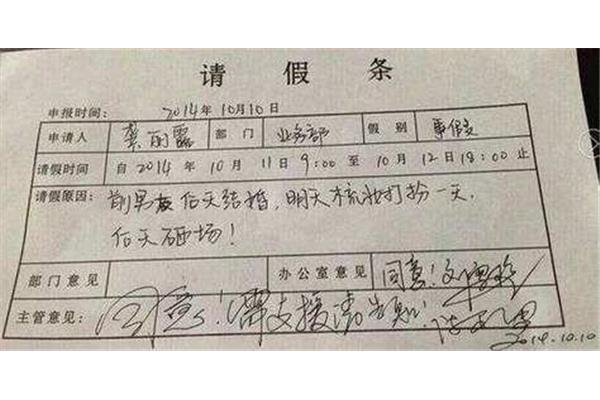 请假条
申报时间： 2014年10月10日
申请人 龚丽露 部门 业务部 假别 事假
请假时间 自2014年10月11日9:00至10月12日18:00止
请假原因： 前男友后天结婚，明天梳妆打扮一天，
后天砸场！
部门意见 办公室意见 同意！
主管意见： 同意！需支援请告知！
2014.10.10